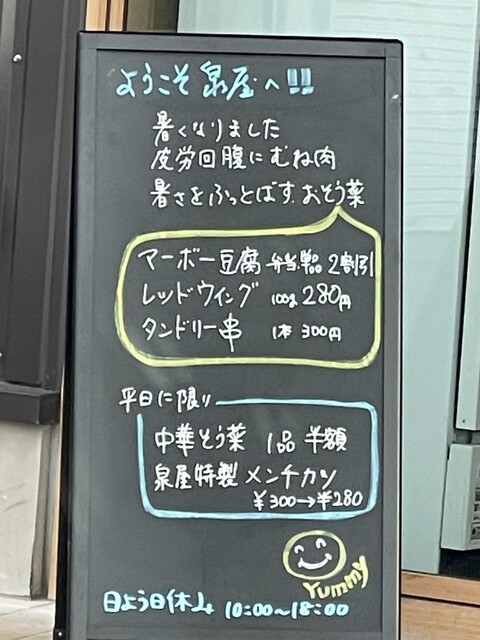 ようこそ泉屋へ!!
暑くなりました
疲労回腹にむね肉
暑さをふっとばす.おそう菜
マーボー豆腐 弁当.単品 2割引
レッドウイング 100g 280円
タンドリー串 1本 300円
平日に限り
中華そう菜 1品 半額
泉屋特製 メンチカツ
¥300→¥280
Yummy
日よう日休み 10:00~18:00